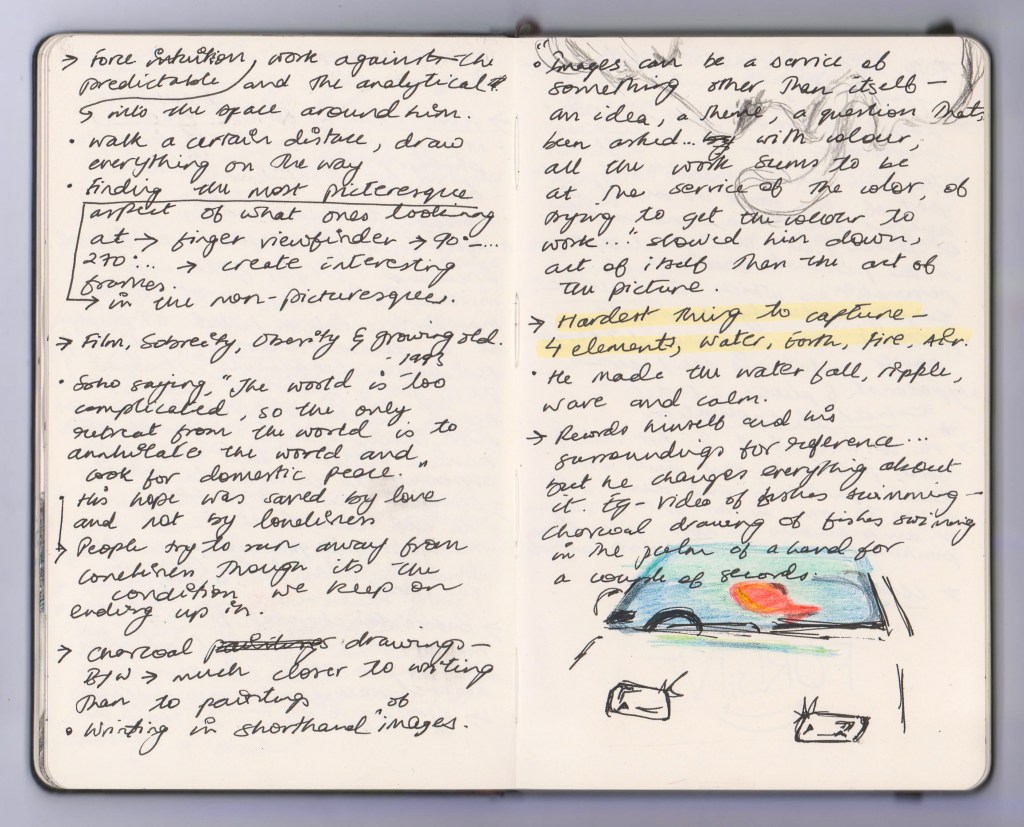 → Force intuition, work against the
predictable, and the analytical.
↳ into the space around him.
• walk a certain distace, draw
everything on the way
• Finding the most picteresque
aspect of what ones looking
at → finger viewfinder → 90°...
270°... → create interesting
frames.
→ in the non-picturesques.
→ Film, Sobreity, Obesity & growing old.
- 1993
• Soho saying, "The world is too
complicated, so the only
retreat from the world is to
annhilate the world and
look for domestic peace."
• His hope was saved by love
and not by loneliness
→ People try to run away from
loneliness though its the
condition we keep on
ending up in.
→ Charcoal drawings -
B/W → much closer to writing
than to paintings
• Writing in shorthand "of images.
• "Images can be a service of
something other than itself -
an idea, a theme, a question thats
been asked... with colour,
all the work seems to be
at the service of the color, of
trying to get the colour to
work..." slowed him down,
act of itself than the act of
the picture.
→ Hardest thing to capture -
4 elements, water, Earth, Fire, Air.
• He made the water fall, ripple,
wave and calm.
→ Records himself and his
surroundings for reference...
but he changes everything about
it. Eg- video of fishes swimming -
charcoal drawing of fishes swimming
in the palm of a hand for
a couple of seconds.